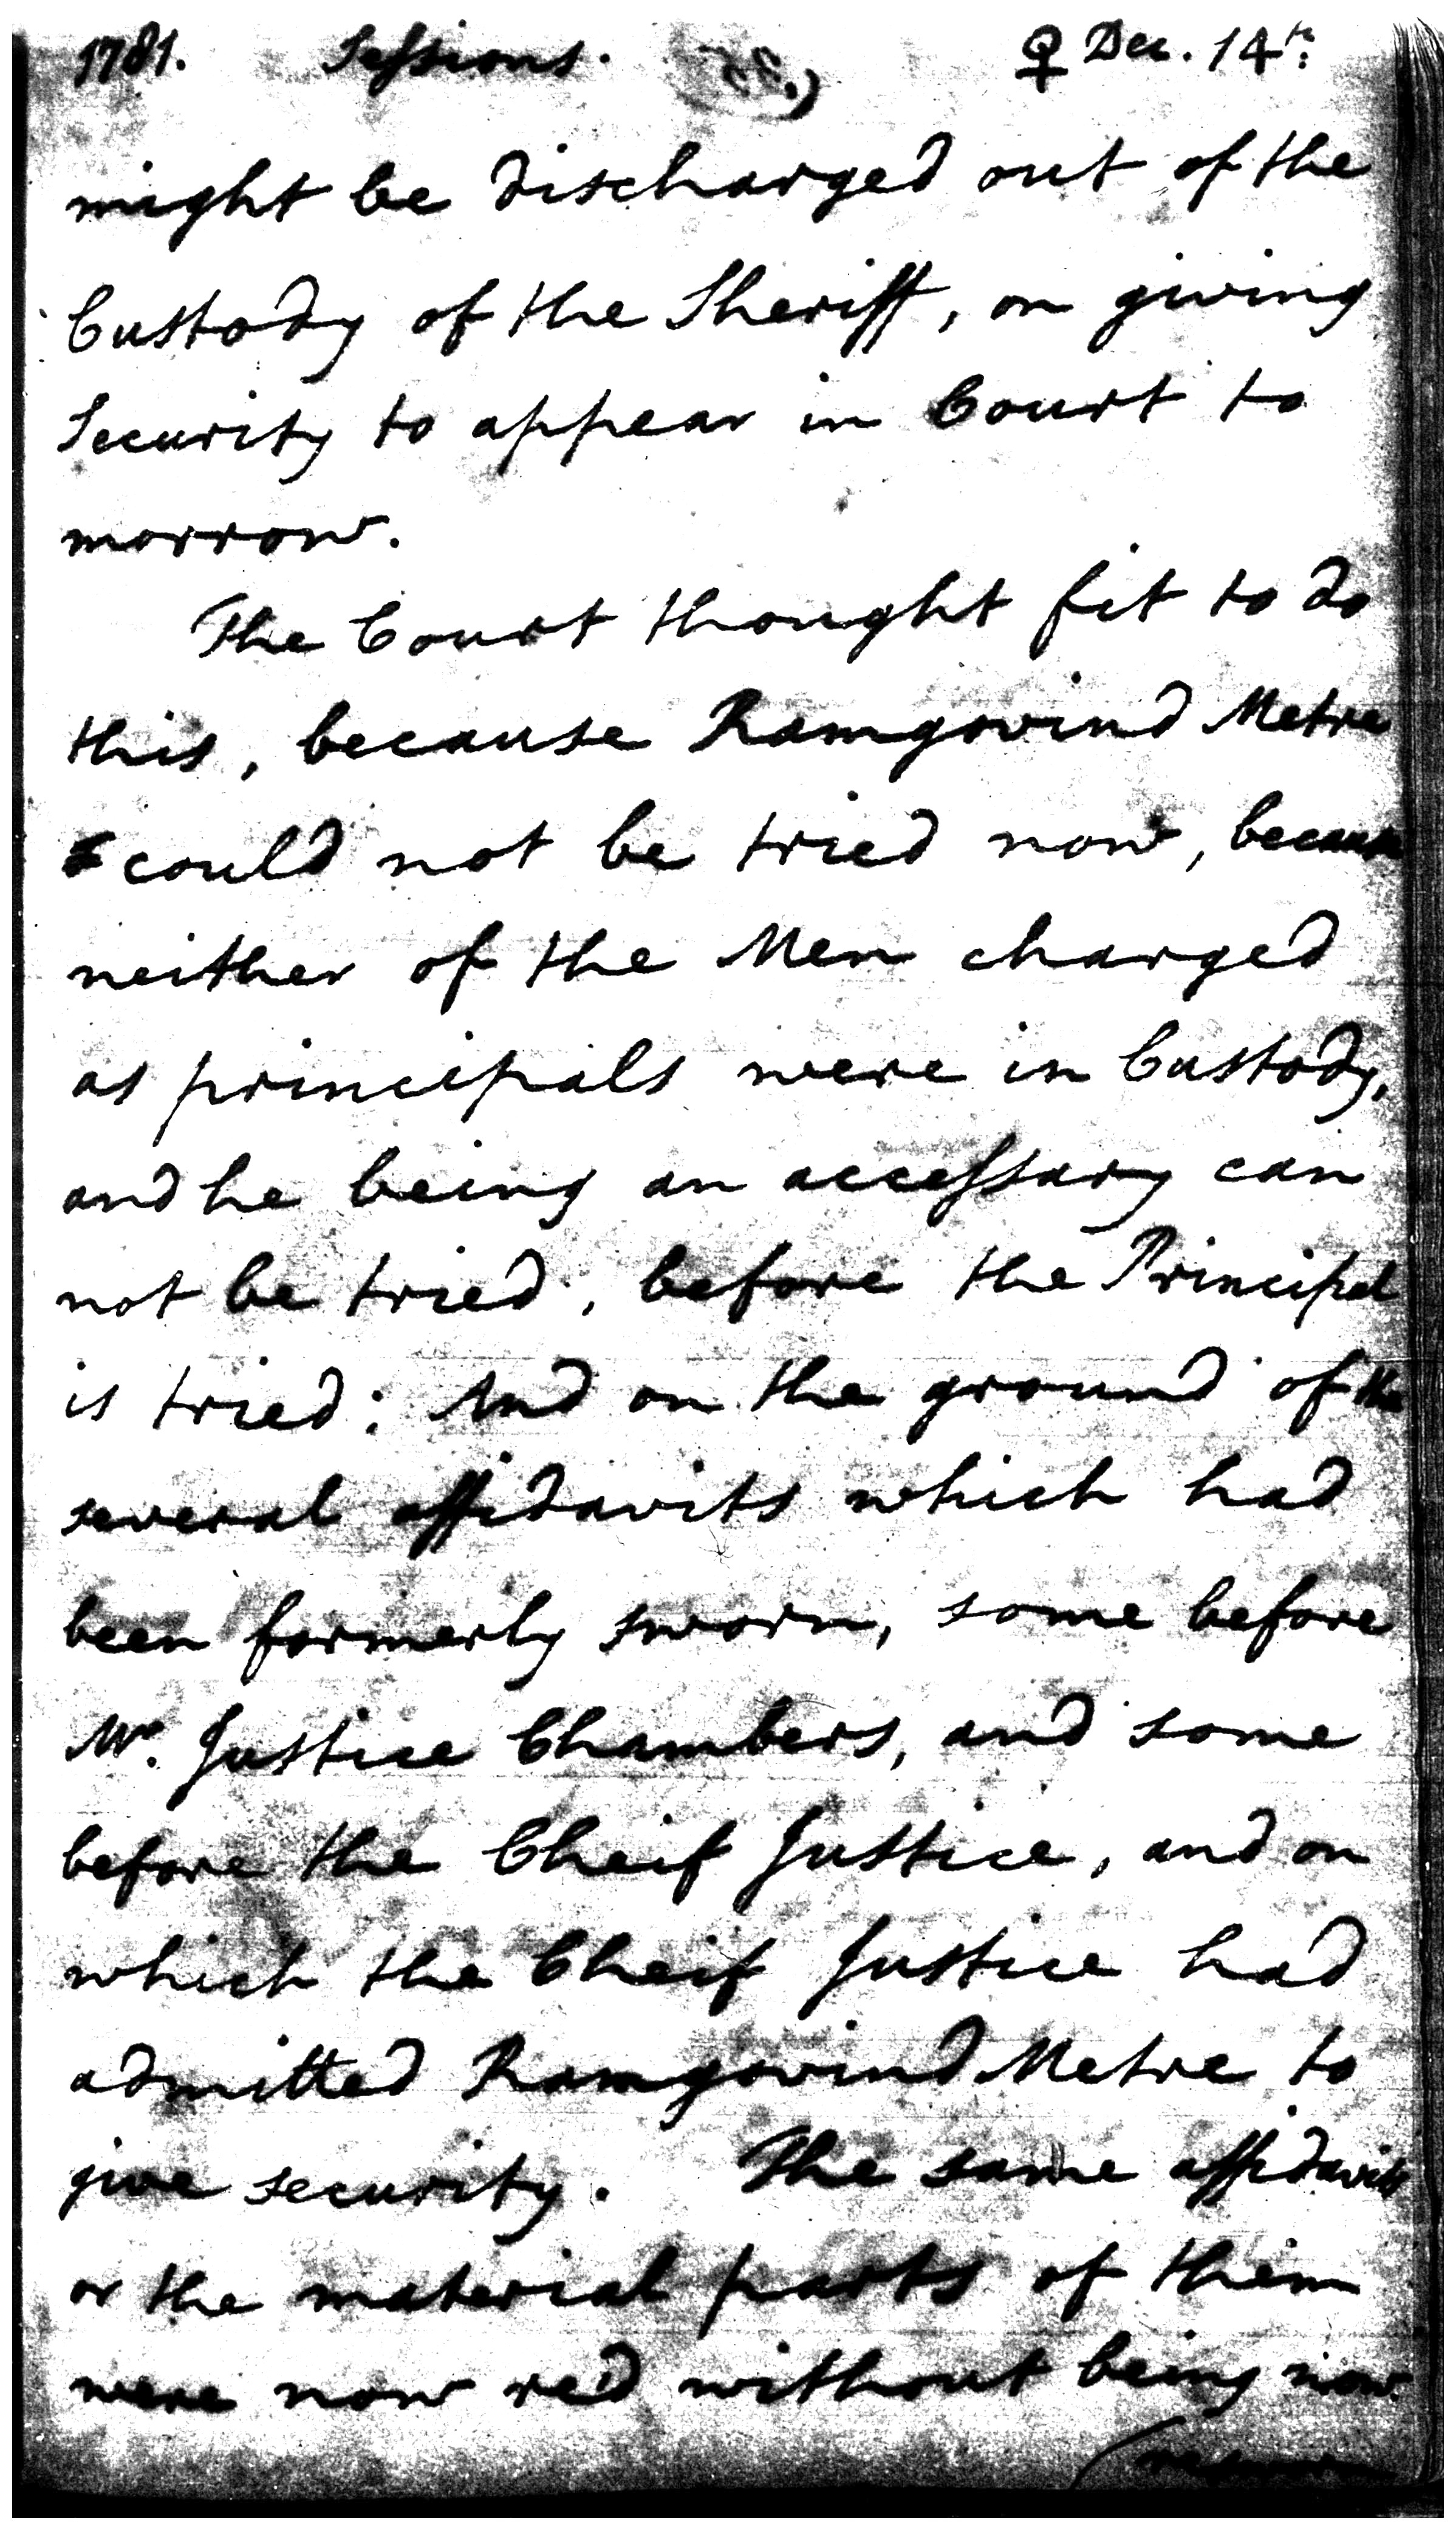 1781. Sessions. ♀ Dec. 14th.
might be discharged out of the
Custody of the Sheriff, on giving
Security to appear in Court to
morrow.
The Court thought fit to do
this, because Ramgovind Metre
could not be tried now, because
neither of the Men charged
as principals were in Custody,
and he being an accessary can
not be tried, before the Principal
is tried: And on the ground of the
several affidavits which had
been formerly sworn, some before
Mr. Justice Chambers, and some
before the Cheif Justice, and on
which the Cheif Justice had
admitted Ramgovind Metre to
give security. The same affidavits
or the material parts of them
were now red without being now